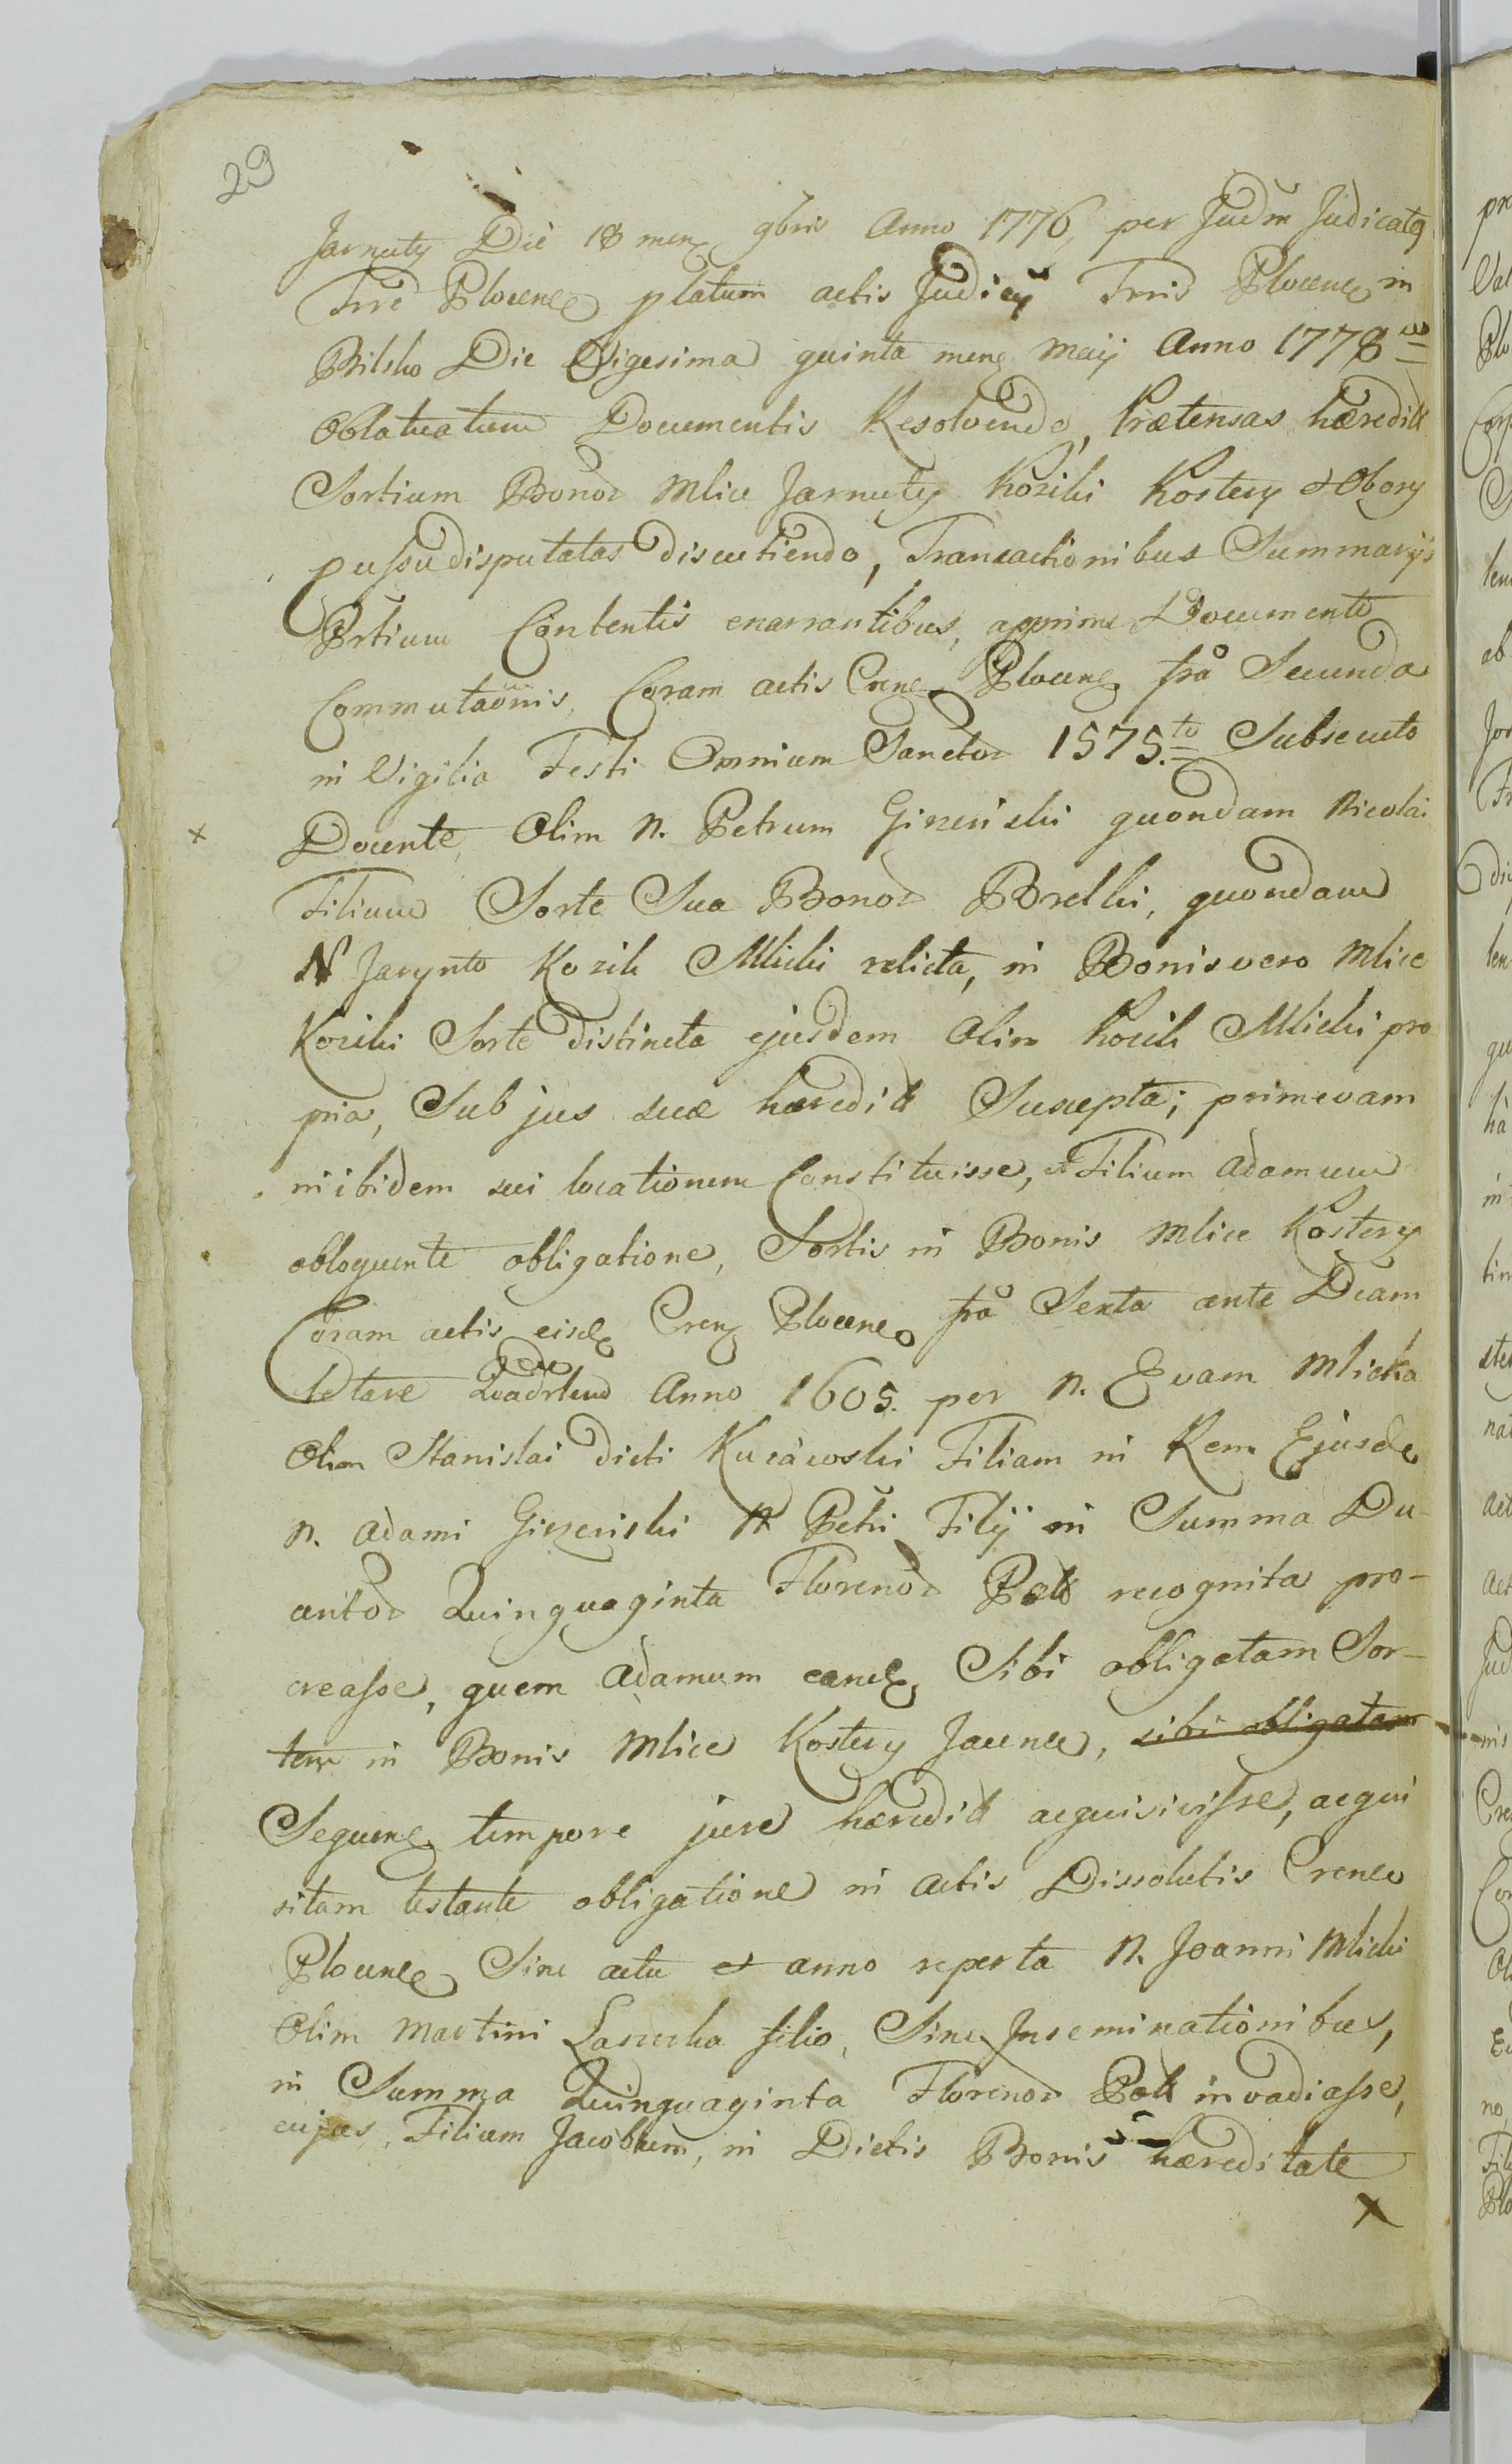 29
Jarnuty Die 18 mens 9bris Anno 1776 per Judm Judicatq
Trre Plocens platum actis Judicÿ Trris Plocens in
Bilsko Die Vigesima quinta mens Maij Anno 1778vo
Oblatuatum Documentis Resolvendo, Prætensas hæredit
Sortium Bonor Mlice Jarnuty Koziki Kostery et Obory
passu disputatas discutiendo, Transactionibus Summarijs
Prtium Contentis enarrantibus, apprime Documento
Commutaönis, Coram actis Crens Plocens fra Secunda
in Vigilia Festi Omnium Sanctor 1575.to Subsecuto
x Docente, Olim N. Petrum Gizeriski quondam Nicolai
Filium Sorte Sua Bonor Brelki, quondam
N Jacynto Kozik Mlicki relicta, in Bonis vero Mlice
Koziki Sorte distincta ejusdem Olim Kozik Mlicki pro
pria, Sub jus suæ hæredit Suscepta; primevam
inibidem sui locationem Constituisse, et Filium Adamum
obloquente obligatione, Sortis in Bonis Mlice Kostery
Coram actis eisd Crens Plocens fra Sexta ante Dcam
letare Quadrlem Anno 1605. per N. Evam Mlicka
Olim Stanislai dicti Kucäwski Filiam in Rem Ejusd
N. Adami Gizeriski N Petri Filÿ in Summa Du-
centor Quinquaginta Florenor Polt recognita pro-
creasse, quem Adamum eand Sibi obligatam Sor-
tem in Bonis Mlice Kostery Jacens, sibi obligatam
Sequens tempore jure hæredit acquisivisse, acqui
sitam testante obligatione in Actis Dissolutis Crens
Plocens Sine actu et anno reperta N. Joanni Mlicki
Olim Martini Lascecha filio, Sine Inseminationibus,
in Summa Quinquaginta Florenor Polt invadiasse,
cujus, Filium Jacobum, in Dictis Bonis hæreditate
x